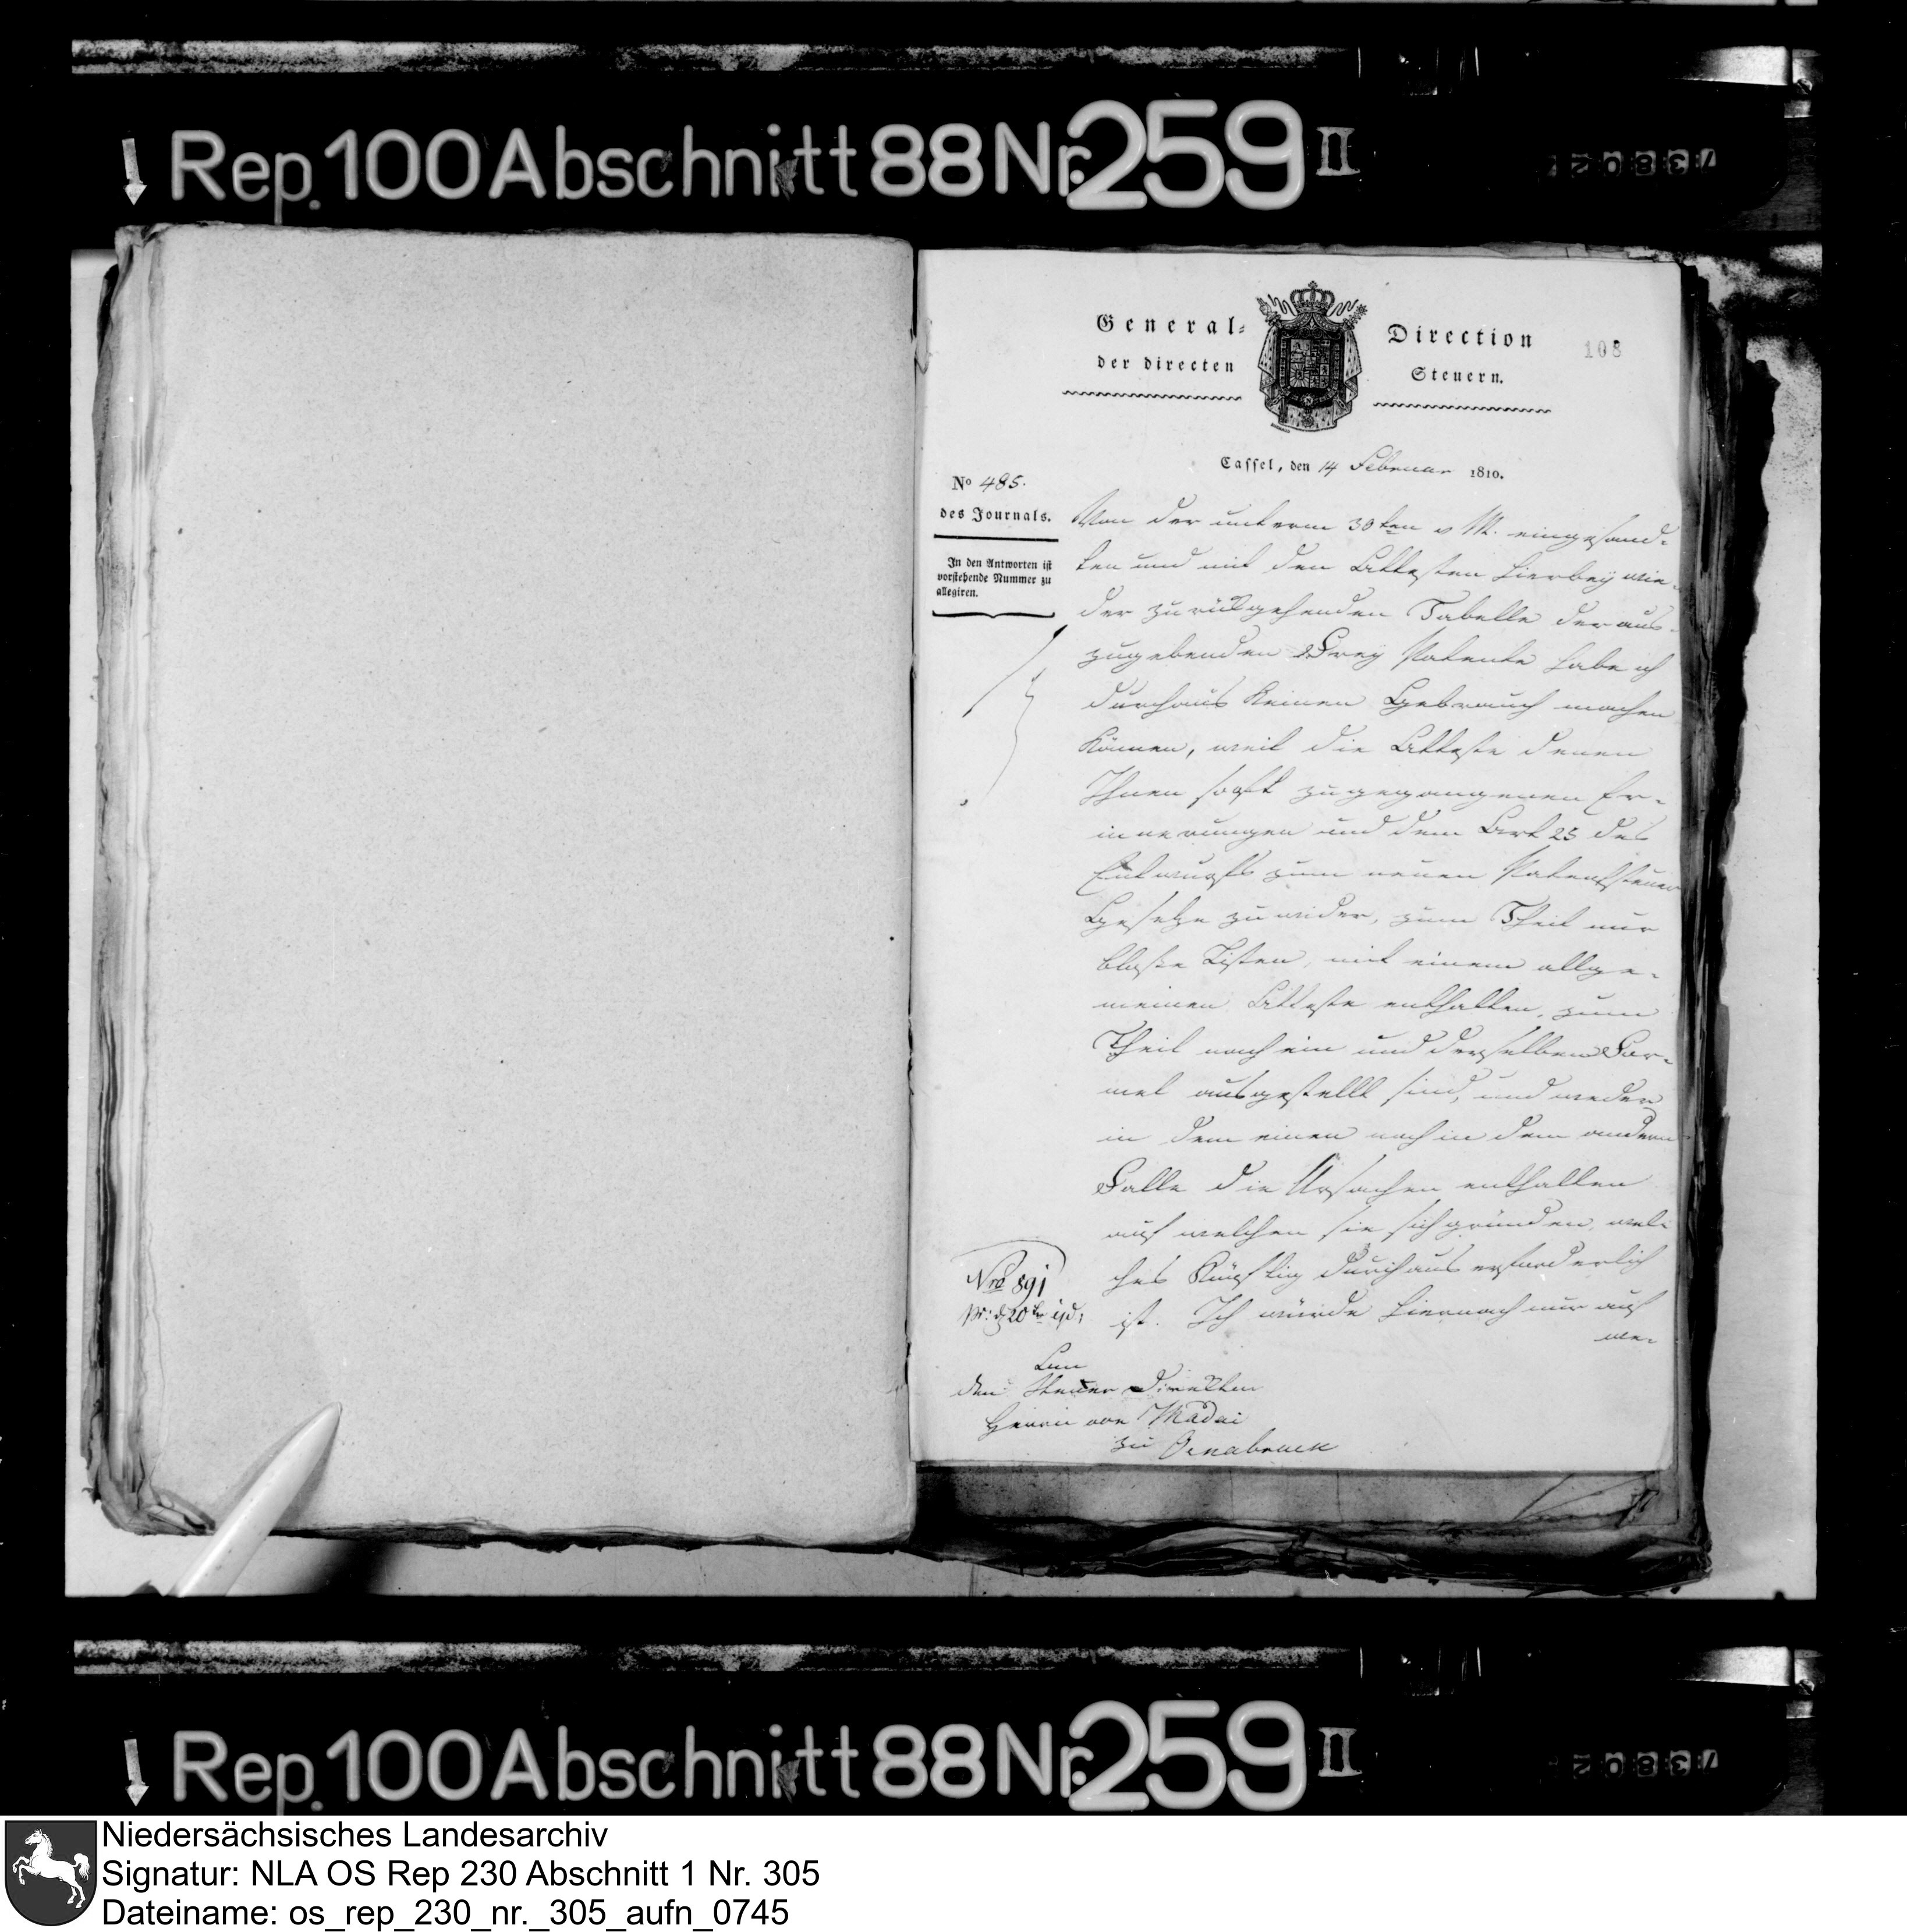 Rep. 100 Abschnitt 88 Nr. 259 II
General-Direction
der directen Steuern.
108
Cassel, den 14 Februar 1810.
No 485.
des Journals.
In den Antworten ist
vorstehende Nummer zu
allegiren.
Von der unterm 30ten v M. eingesand-
ten und mit den Attesten hierbey wie-
der zurückgehenden Tabelle der aus-
zugebenden Frey Patente habe ich
durchaus keinen Gebrauch machen
können, weil die Atteste denen
Ihnen sooft zugegangenen Er-
innerungen und dem Art 25 des
Entwurfs zum neuen Patentsteuer
Gesetze zuwider, zum Theil nur
bloße Listen, mit einem allge-
meinen Atteste enthalten, zum
Theil nach ein und derselben For-
mel ausgestellt sind, und weder
in dem einen noch in dem andern
Falle die Ursachen enthalten
auf welchen sie sich gründen, wel-
ches künftig durchaus erforderlich
ist. Ich würde hiernach nur auf
we-
Nro 891
pr: d 20ten
An
den Steuer Direktor
Herrn von Madai
zu Osnabrueck
Rep. 100 Abschnitt 88 Nr. 259 II
Niedersächsisches Landesarchiv
Signatur: NLA OS Rep 230 Abschnitt 1 Nr. 305
Dateiname: os_rep_230_nr._305_aufn_0745